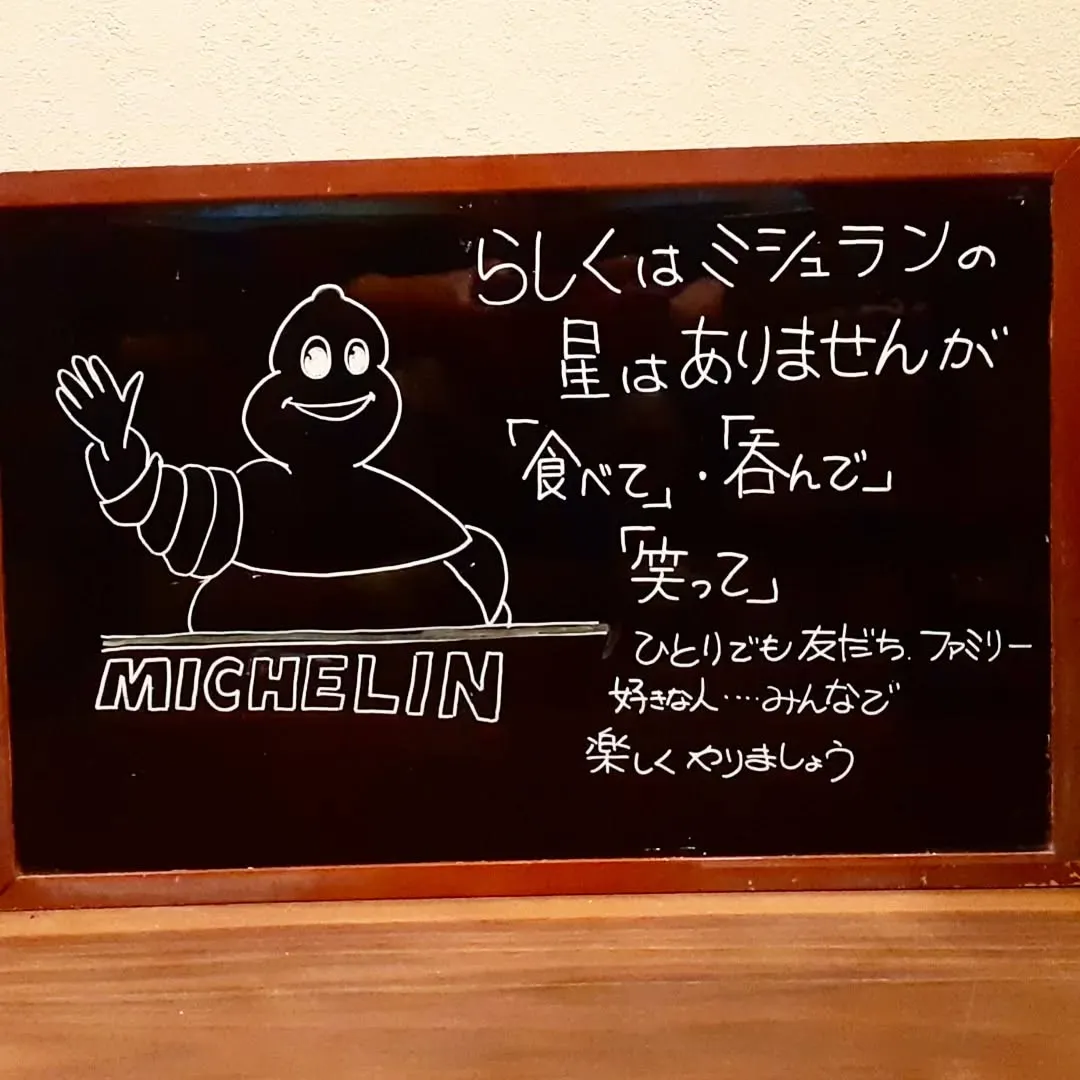 らしくはミシュランの
星はありませんが
「食べて」・「呑んで」
「笑って」
ひとりでも友だち、ファミリー
好きな人‥‥みんなで
楽しくやりましょう
MICHELIN